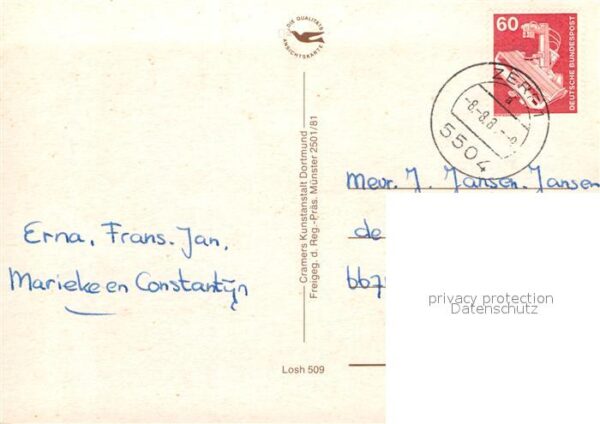 DIE QUALITÄTS
ANSICHTSKARTE
60
DEUTSCHE BUNDESPOST
ZERF 1
a
-8.-8.8
5504
Mevr. J. Jansen-Jansen
de
667
Erna, Frans. Jan,
Marieke en Constantijn
Cramers Kunstanstalt Dortmund
Freigeg. d. Reg.-Präs. Münster 2501/81
Losh 509
privacy protection
Datenschutz